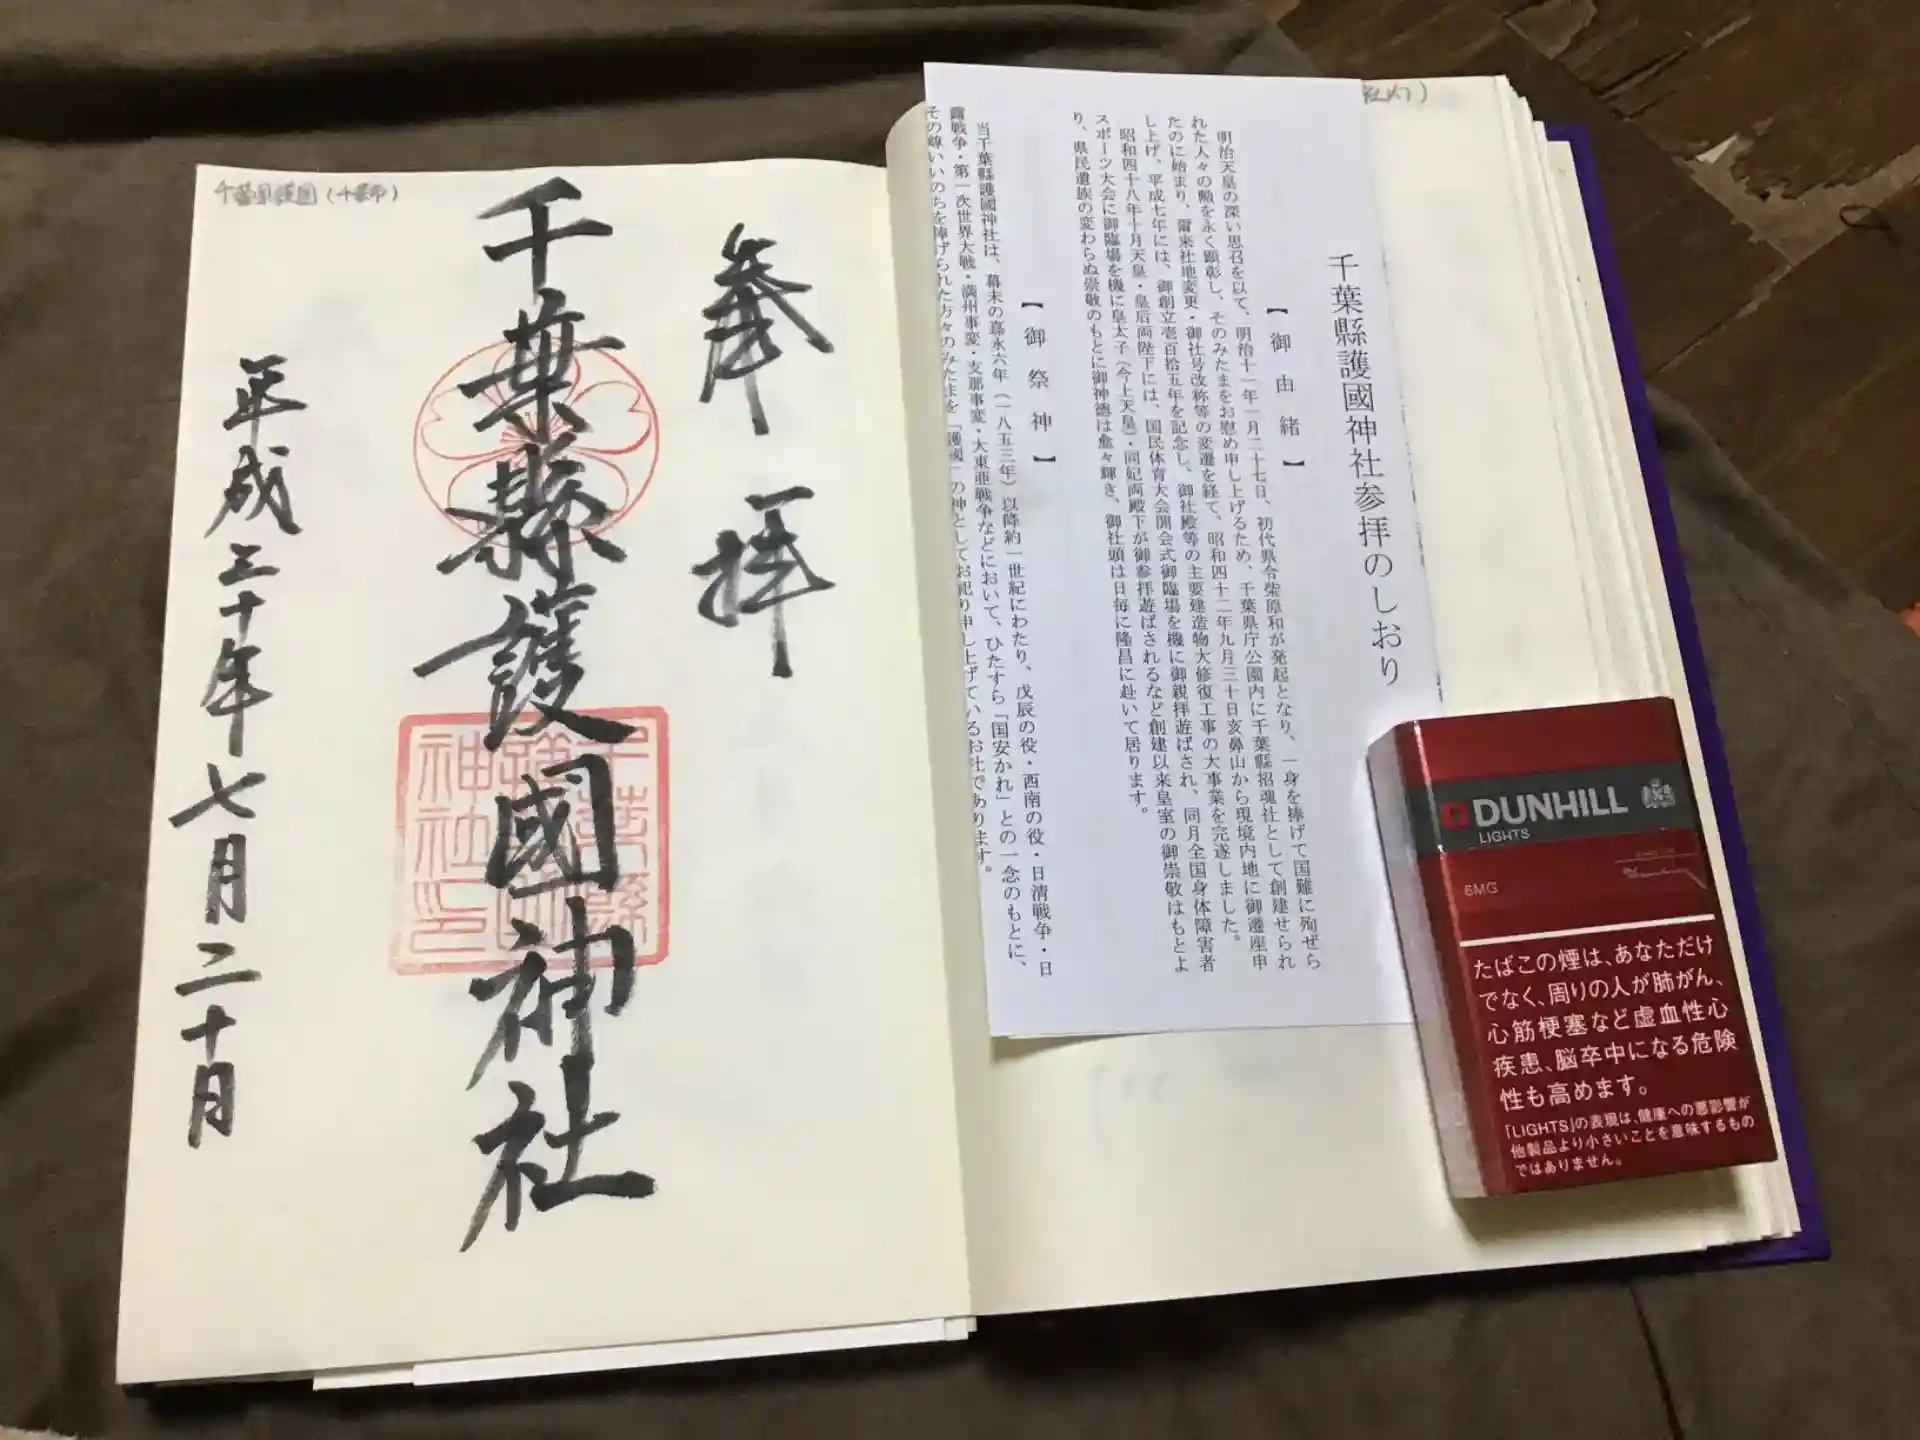 千葉県護国(千葉市)
奉拝
千葉縣護國神社
平成三十年七月二十日
千葉縣護國神社参拝のしおり
【御由緒】
明治天皇の深い思召を以て、明治十一年一月二十七日、初代県令柴原和が発起となり、一身を捧げて国難に殉ぜら
れた人々の勲を永く顕彰し、そのみたまをお慰め申し上げるため、千葉県庁公園内に千葉縣招魂社として創建せられ
たのに始まり、爾来社地変更・御社号改称等の変遷を経て、昭和四十二年九月三十日亥鼻山から現境内地に御遷座申
し上げ、平成七年には、御創立壱百拾五年を記念し、御社殿等の主要建造物大修復工事の大事業を完遂しました。
昭和四十八年十月天皇・皇后両陛下には、国民体育大会開会式御臨場を機に御親拝遊ばされ、同月全国身体障害者
スポーツ大会に御臨場を機に皇太子(今上天皇)・同妃両殿下が御参拝遊ばされるなど創建以来皇室の御崇敬はもとよ
り、県民遺族の変わらぬ崇敬のもとに御神徳は愈々輝き、御社頭は日毎に隆昌に赴いて居ります。
【御祭神】
当千葉縣護國神社は、幕末の嘉永六年(一八五三年)以降約一世紀にわたり、戊辰の役・西南の役・日清戦争・日
露戦争・第一次世界大戦・満州事変・支那事変・大東亜戦争などにおいて、ひたすら「国安かれ」との一念のもとに、
その尊いいのちを捧げられた方々のみたまを「護國」の神としてお祀り申し上げているお社であります。
DUNHILL
LIGHTS
6MG
たばこの煙は、あなただけ
でなく、周りの人が肺がん、
心筋梗塞など虚血性心
疾患、脳卒中になる危険
性も高めます。
「LIGHTS」の表現は、健康への悪影響が
他製品より小さいことを意味するもの
ではありません。